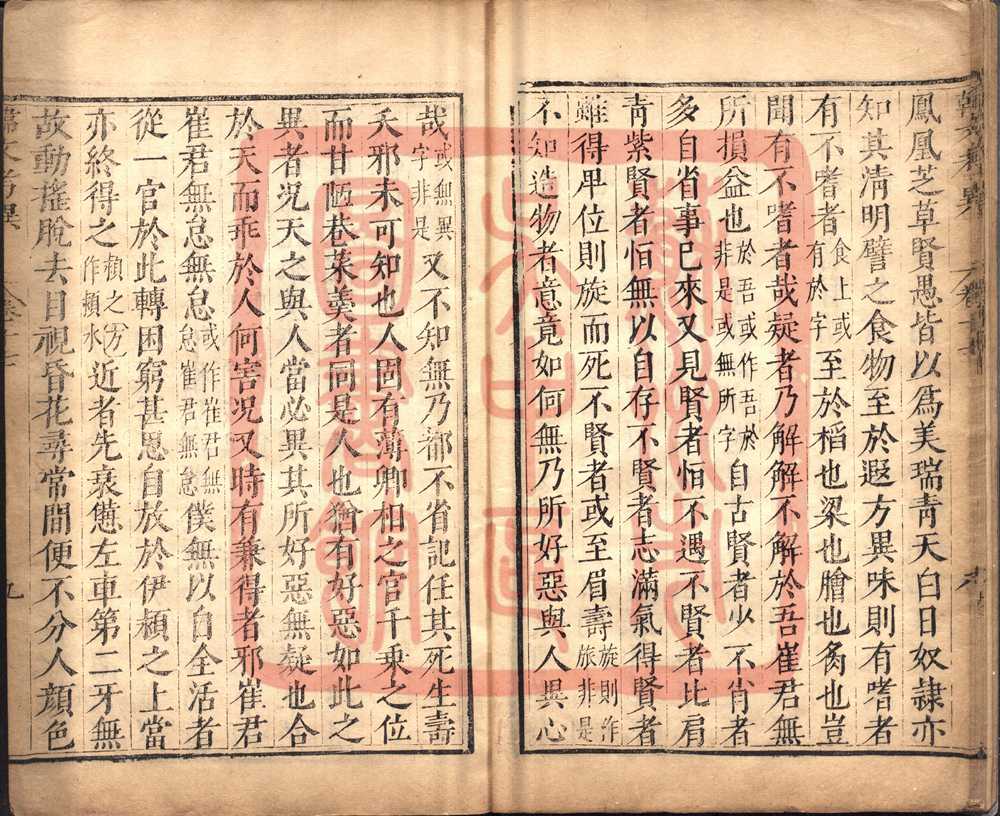 鳳凰芝草賢愚皆以爲美瑞靑天白日奴隷亦
知其清明譬之食物至於遐方異味則有嗜者
有不嗜者食上或有於字至於稻也梁也膾也炙也豈
聞有不嗜者哉疑者乃解解不解於吾崔君無
所損益也於吾或作吾於非是或無所字自古賢者少不肖者
多自省事已來又見賢者恒不遇不賢者比肩
靑紫賢者恒無以自存不賢者志滿氣得賢者
雖得卑位則旋而死不賢者或至眉壽旋則作旅非是
不知造物者意竟如何無乃所好惡與人異心
哉或無異字非是又不知無乃都不省記任其死生壽
夭邪未可知也人固有薄卿相之官千乘之位
而甘陋巷菜羮者同是人也猶有好惡如此之
異者况天之與人當必異其所好惡無疑也合
於天而乖於人何害况又時有兼得者邪崔君
崔君無怠無怠或作崔君無怠崔君無怠僕無以自全活者
從一官於此轉困窮甚思自放於伊潁之上當
亦終得之潁之方作頴水近者先衰憊左車第二牙無
故動搖脫去目視昏花尋常間便不分人顏色
九